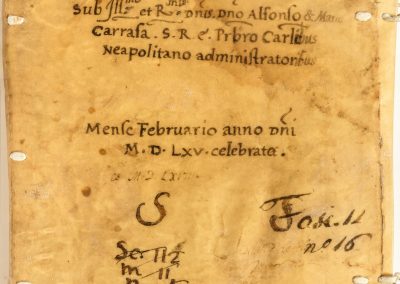 Sub Ill^mo et R^mis Dnis. Dno Alfonso & Mario
Carrafa . S . R . e . Prbro Carlibus
Neapolitano administratoribus
Mense Februario anno Dni
M . D . LXV . celebrata .
M D LXV
S
Fasc. 11
nº 16